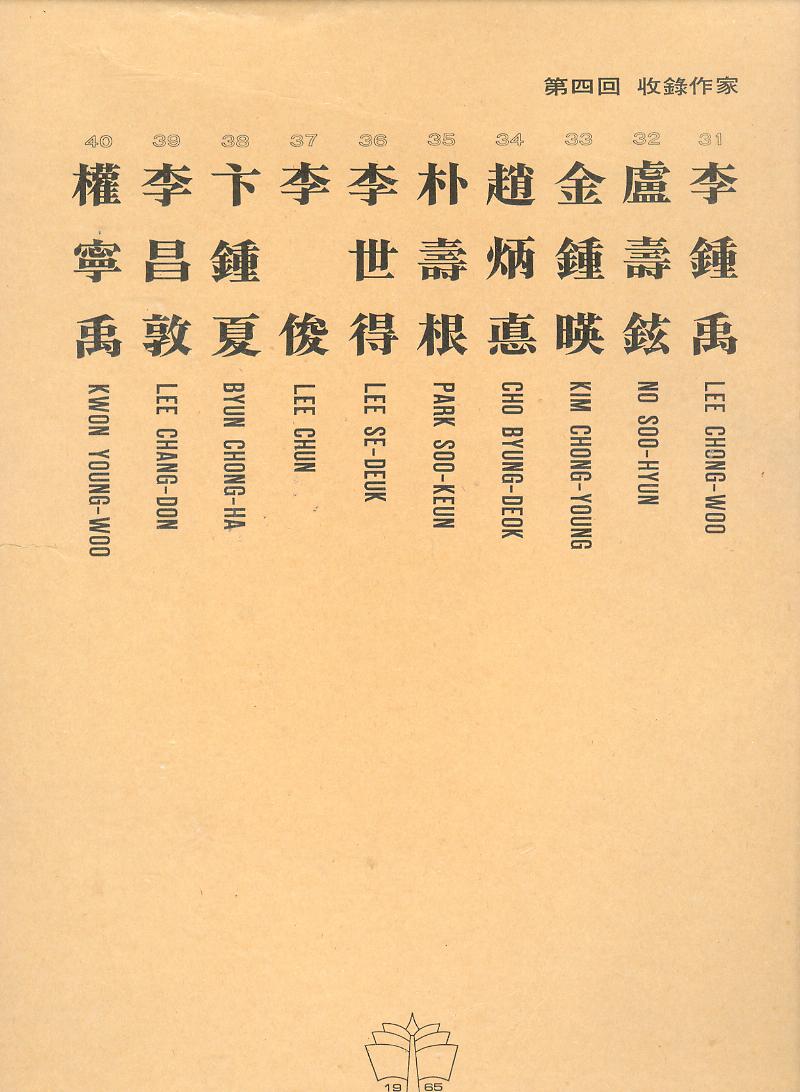 第四回 收錄作家
31
李鍾禹
LEE CHONG-WOO
32
盧壽鉉
NO SOO-HYUN
33
金鍾暎
KIM CHONG-YOUNG
34
趙炳悳
CHO BYUNG-DEOK
35
朴壽根
PARK SOO-KEUN
36
李世得
LEE SE-DEUK
37
李俊
LEE CHUN
38
卞鍾夏
BYUN CHONG-HA
39
李昌敦
LEE CHANG-DON
40
權寧禹
KWON YOUNG-WOO
1965